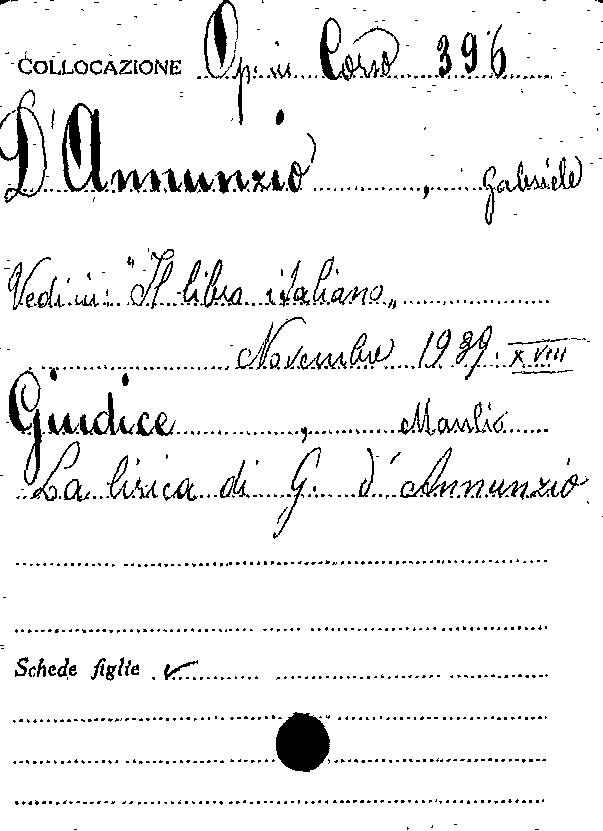 COLLOCAZIONE Op. in Corso 396
D'Annunzio, Gabriele
Vedi in: "Il libro italiano„
Novembre 1939. XVIII
Giudice, Manlio
La lirica di G. d'Annunzio
Schede figlie ✓